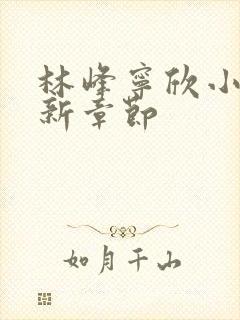 林峰寧欣小
新章節
如月千山